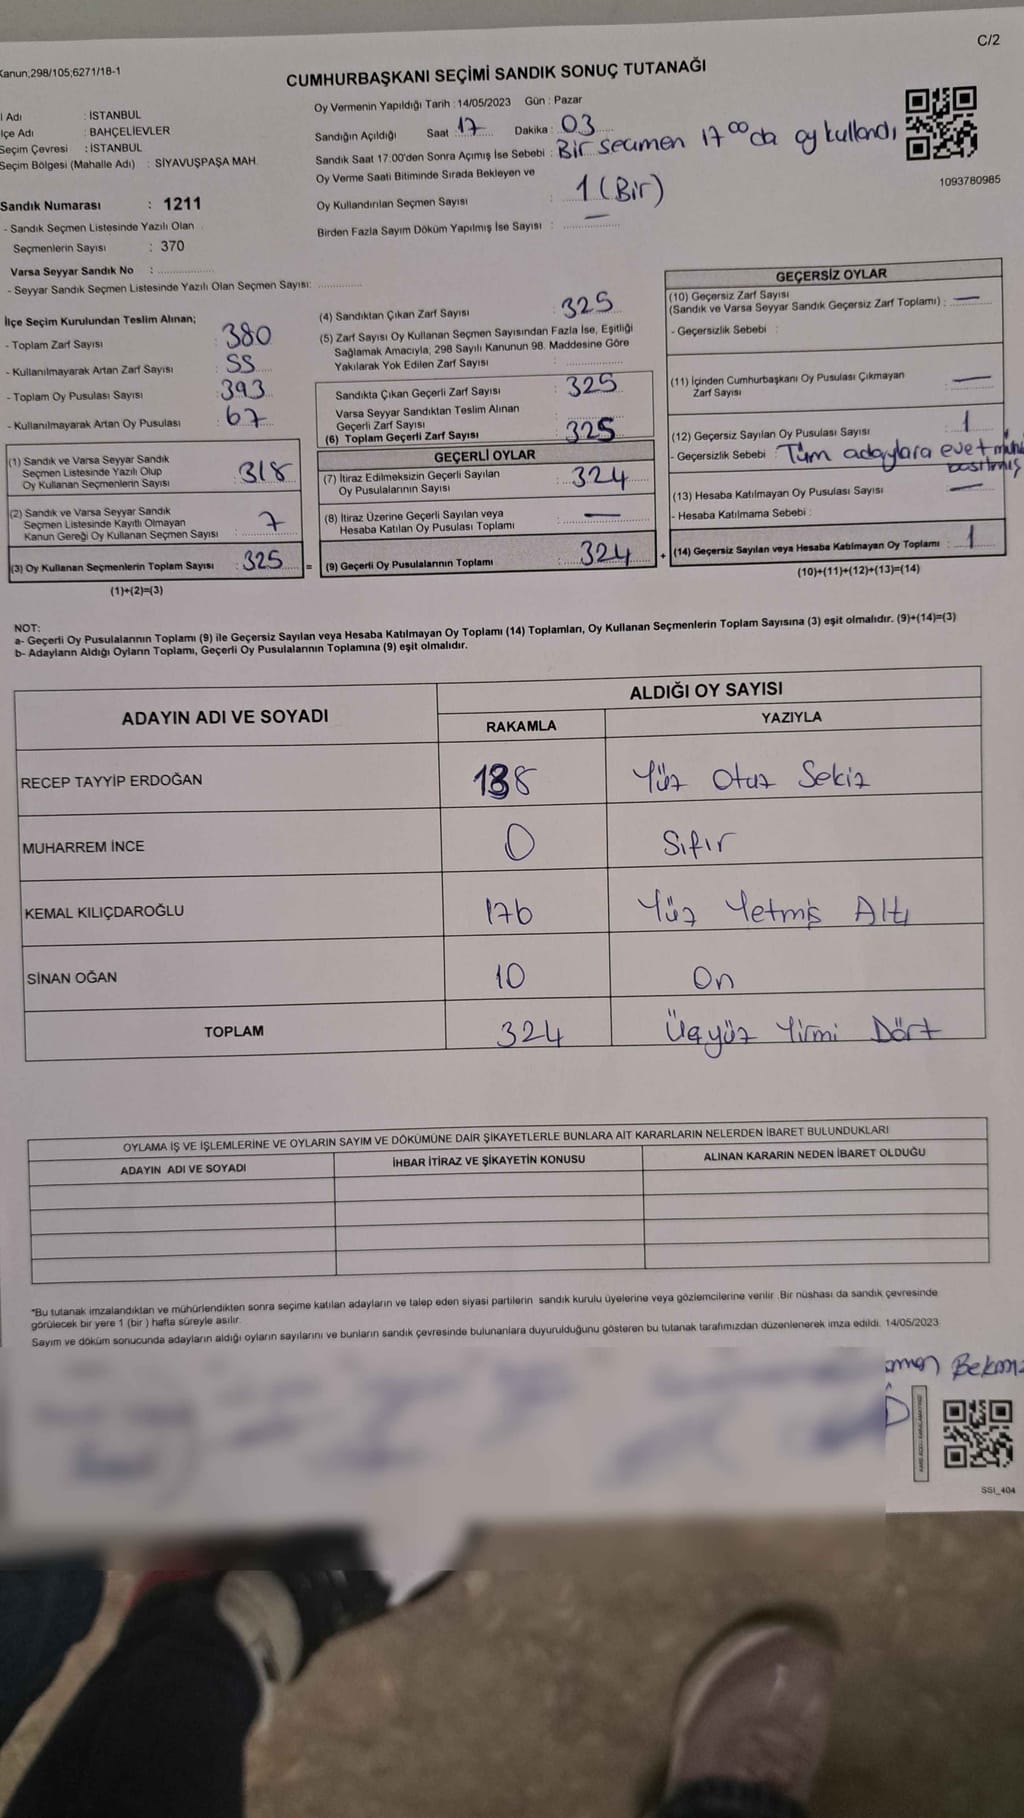 Kanun;298/105;6271/18-1
C/2
CUMHURBAŞKANI SEÇİMİ SANDIK SONUÇ TUTANAĞI
l Adı : İSTANBUL
lçe Adı : BAHÇELİEVLER
Seçim Çevresi : İSTANBUL
Seçim Bölgesi (Mahalle Adı) : SİYAVUŞPAŞA MAH.
Sandık Numarası : 1211
- Sandık Seçmen Listesinde Yazılı Olan
Seçmenlerin Sayısı : 370
Varsa Seyyar Sandık No :
- Seyyar Sandık Seçmen Listesinde Yazılı Olan Seçmen Sayısı:
Oy Vermenin Yapıldığı Tarih : 14/05/2023 Gün : Pazar
Sandığın Açıldığı Saat : 17 Dakika : 03
Sandık Saat 17:00'den Sonra Açımış İse Sebebi : Bir seçmen 17⁰⁰'da oy kullandı
Oy Verme Saati Bitiminde Sırada Bekleyen ve
Oy Kullandırılan Seçmen Sayısı : 1 (Bir)
Birden Fazla Sayım Döküm Yapılmış İse Sayısı : —
1093780985
İlçe Seçim Kurulundan Teslim Alınan;
- Toplam Zarf Sayısı : 380
- Kullanılmayarak Artan Zarf Sayısı : 55
- Toplam Oy Pusulası Sayısı : 393
- Kullanılmayarak Artan Oy Pusulası : 67
(1) Sandık ve Varsa Seyyar Sandık
Seçmen Listesinde Yazılı Olup
Oy Kullanan Seçmenlerin Sayısı : 318
(2) Sandık ve Varsa Seyyar Sandık
Seçmen Listesinde Kayıtlı Olmayan
Kanun Gereği Oy Kullanan Seçmen Sayısı : 7
(3) Oy Kullanan Seçmenlerin Toplam Sayısı : 325
(1)+(2)=(3)
(4) Sandıktan Çıkan Zarf Sayısı : 325
(5) Zarf Sayısı Oy Kullanan Seçmen Sayısından Fazla İse, Eşitliği
Sağlamak Amacıyla; 298 Sayılı Kanunun 98. Maddesine Göre
Yakılarak Yok Edilen Zarf Sayısı :
Sandıkta Çıkan Geçerli Zarf Sayısı : 325
Varsa Seyyar Sandıktan Teslim Alınan
Geçerli Zarf Sayısı :
(6) Toplam Geçerli Zarf Sayısı : 325
GEÇERLİ OYLAR
(7) İtiraz Edilmeksizin Geçerli Sayılan
Oy Pusulalarının Sayısı : 324
(8) İtiraz Üzerine Geçerli Sayılan veya
Hesaba Katılan Oy Pusulası Toplamı : —
= (9) Geçerli Oy Pusulalarının Toplamı : 324
GEÇERSİZ OYLAR
(10) Geçersiz Zarf Sayısı
(Sandık ve Varsa Seyyar Sandık Geçersiz Zarf Toplamı) : —
- Geçersizlik Sebebi :
(11) İçinden Cumhurbaşkanı Oy Pusulası Çıkmayan
Zarf Sayısı : —
(12) Geçersiz Sayılan Oy Pusulası Sayısı : 1
- Geçersizlik Sebebi : Tüm adaylara evet mührü
basılmış
(13) Hesaba Katılmayan Oy Pusulası Sayısı : —
- Hesaba Katılmama Sebebi :
+ (14) Geçersiz Sayılan veya Hesaba Katılmayan Oy Toplamı : 1
(10)+(11)+(12)+(13)=(14)
NOT:
a- Geçerli Oy Pusulalarının Toplamı (9) ile Geçersiz Sayılan veya Hesaba Katılmayan Oy Toplamı (14) Toplamları, Oy Kullanan Seçmenlerin Toplam Sayısına (3) eşit olmalıdır. (9)+(14)=(3)
b- Adayların Aldığı Oyların Toplamı, Geçerli Oy Pusulalarının Toplamına (9) eşit olmalıdır.
ADAYIN ADI VE SOYADI ALDIĞI OY SAYISI
RAKAMLA YAZIYLA
RECEP TAYYİP ERDOĞAN 138 Yüz Otuz Sekiz
MUHARREM İNCE 0 Sıfır
KEMAL KILIÇDAROĞLU 176 Yüz Yetmiş Altı
SİNAN OĞAN 10 On
TOPLAM 324 Üçyüz Yirmi Dört
OYLAMA İŞ VE İŞLEMLERİNE VE OYLARIN SAYIM VE DÖKÜMÜNE DAİR ŞİKAYETLERLE BUNLARA AİT KARARLARIN NELERDEN İBARET BULUNDUKLARI
ADAYIN ADI VE SOYADI İHBAR İTİRAZ VE ŞİKAYETİN KONUSU ALINAN KARARIN NEDEN İBARET OLDUĞU
*Bu tutanak imzalandıktan ve mühürlendikten sonra seçime katılan adayların ve talep eden siyasi partilerin sandık kurulu üyelerine veya gözlemcilerine verilir. Bir nüshası da sandık çevresinde
görülecek bir yere 1 (bir ) hafta süreyle asılır.
Sayım ve döküm sonucunda adayların aldığı oyların sayılarını ve bunların sandık çevresinde bulunanlara duyurulduğunu gösteren bu tutanak tarafımızdan düzenlenerek imza edildi. 14/05/2023
SSI_404